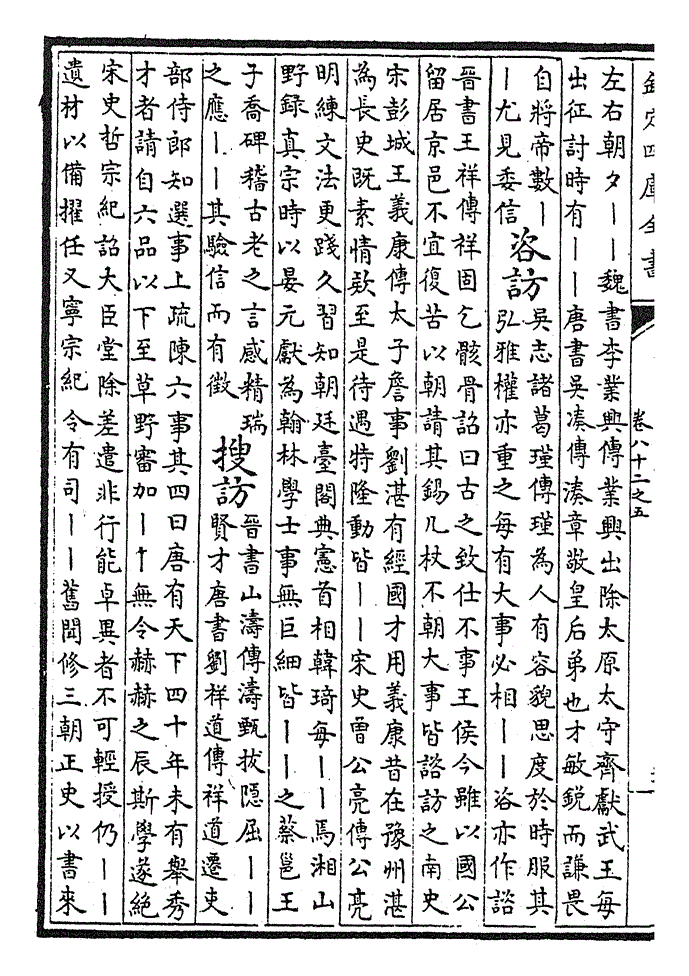 欽定四庫全書
卷八十二之五
左右朝夕丨丨魏書李業興傳業興出除太原太守齊獻武王每
出征討時有丨丨唐書吳湊傳湊章敬皇后弟也才敏銳而謙畏
自將帝數丨
丨尤見委信
咨訪
吳志諸葛瑾傳瑾為人有容貌思度於時服其
弘雅權亦重之每有大事必相丨丨咨亦作諮
晉書王祥傳祥固乞骸骨詔曰古之致仕不事王侯今雖以國公
留居京邑不宜復苦以朝請其錫几杖不朝大事皆諮訪之南史
宋彭城王義康傳太子詹事劉湛有經國才用義康昔在豫州湛
為長史既素情款至是待遇特隆動皆丨丨宋史曾公亮傳公亮
明練文法更踐久習知朝廷臺閣典憲首相韓琦每丨丨焉湘山
野録真宗時以晏元獻為翰林學士事無巨細皆丨丨之蔡邕王
子喬碑稽古老之言感精瑞
之應丨丨其驗信而有徵
搜訪
晉書山濤傳濤甄拔隱屈丨丨
賢才唐書劉祥道傳祥道遷吏
部侍郎知選事上疏陳六事其四曰唐有天下四十年未有舉秀
才者請自六品以下至草野審加丨丨無令赫赫之辰斯學遂絕
宋史哲宗紀詔大臣堂除差遣非行能卓異者不可輕授仍丨丨
遺材以備擢任又寧宗紀 令有司丨丨舊聞修三朝正史以書來